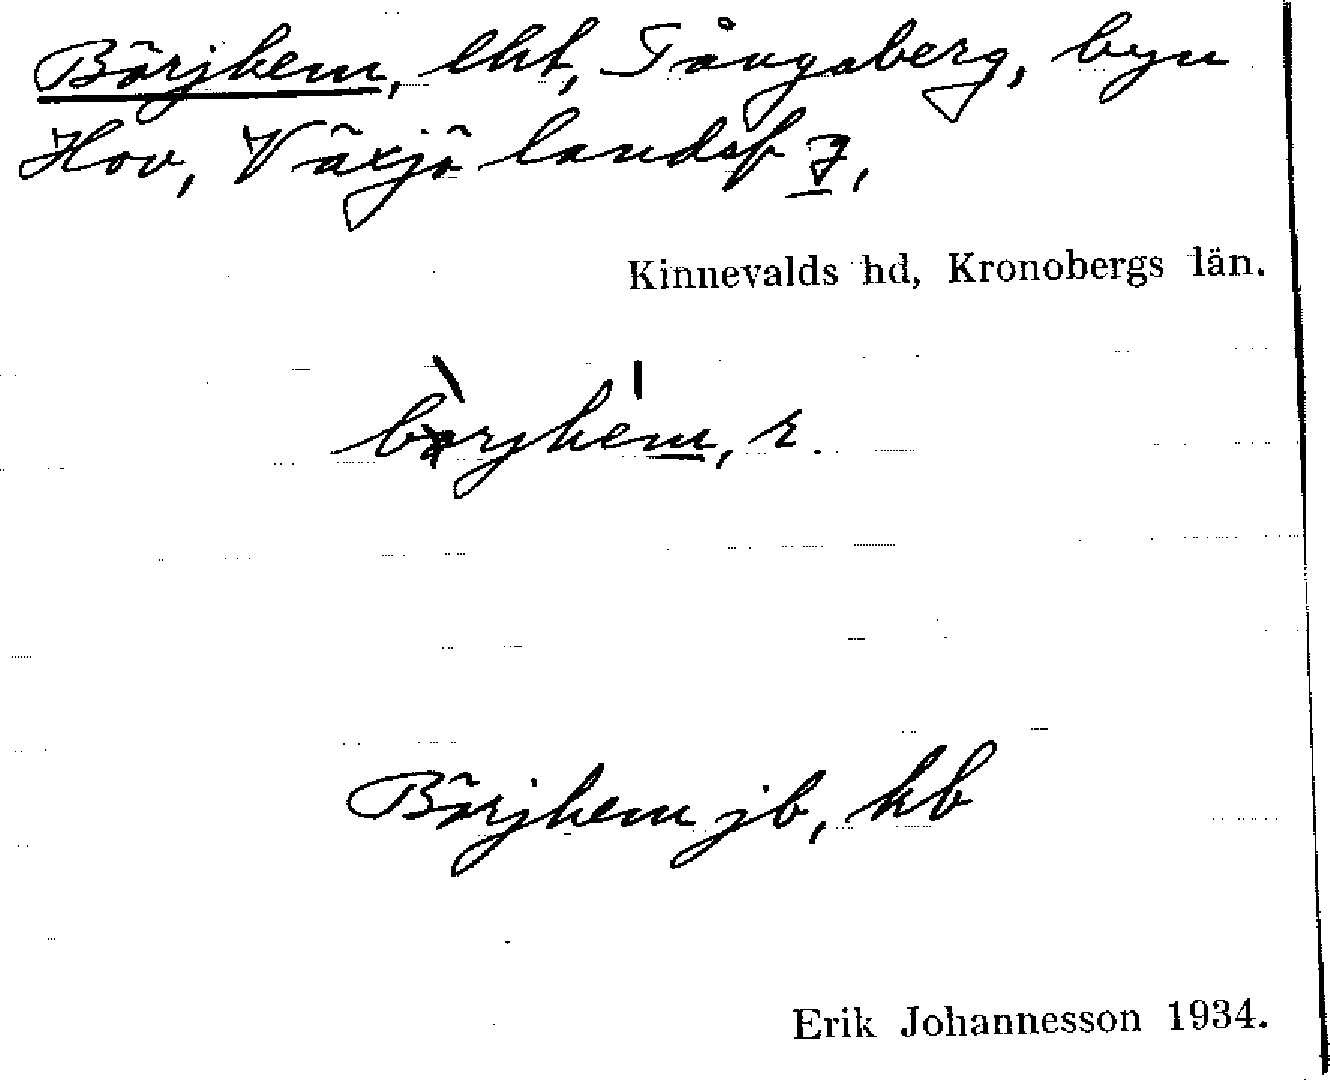 Börjhem, lht, Tångaberg, byn
Hov, Växjö landsf 7,
Kinnevalds hd, Kronobergs län.
Börjhem jb, kb
Erik Johannesson 1934.